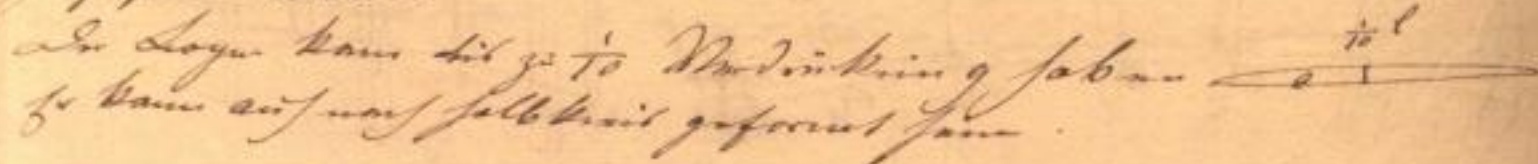 Der Bogen kann bis zu 1/10 Verdrückung haben 1/10 l
Er kann auch nach Halbkreis geformt sein.